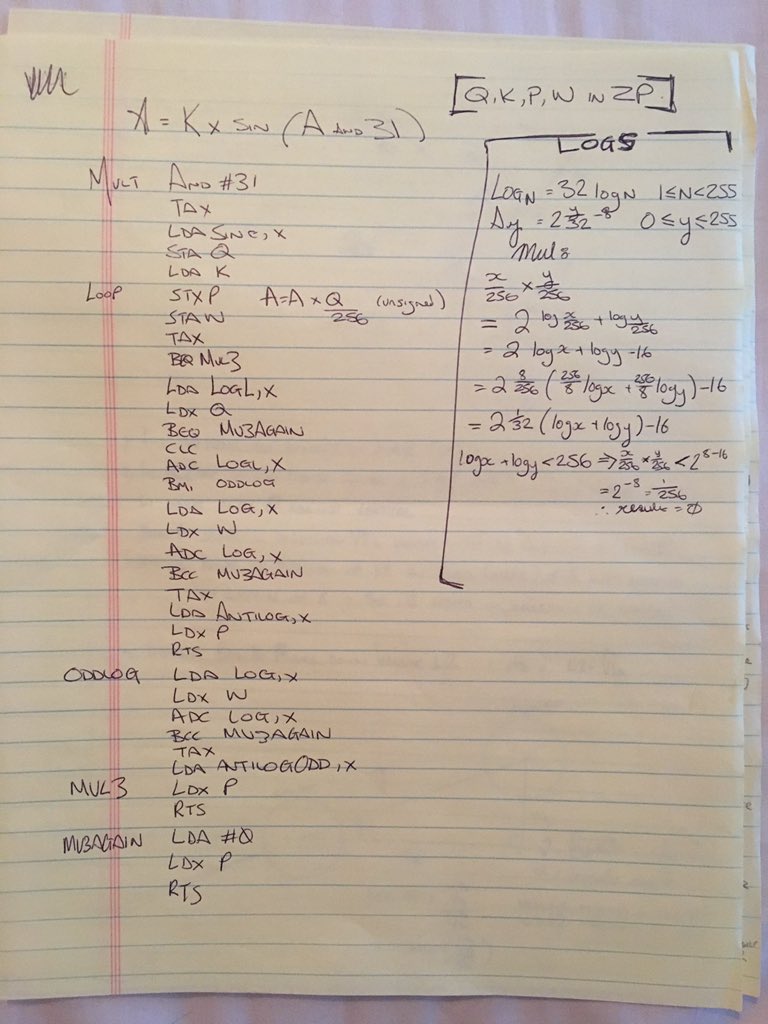 [Q, K, P, W IN ZP]
A = K x SIN (A AND 31)
MULT AND #31
TAX
LDA SINE, X
STA Q
LDA K
LOOP STX P A = A x Q/256 (unsigned)
STA W
TAX
BEQ MUL3
LDA LOGL, X
LDX Q
BEQ MU3AGAIN
CLC
ADC LOGL, X
BMI ODDLOG
LDA LOG, X
LDX W
ADC LOG, X
BCC MU3AGAIN
TAX
LDA ANTILOG, X
LDX P
RTS
ODDLOG LDA LOG, X
LDX W
ADC LOG, X
BCC MU3AGAIN
TAX
LDA ANTILOGODD, X
MUL3 LDX P
RTS
MU3AGAIN LDA #0
LDX P
RTS
LOGS
LOGN = 32 log N 1≤N<255
Ay = 2 y/32 -8 0≤y≤255
Mul8
x/256 x y/256
= 2 log x/256 + log y/256
= 2 logx + logy -16
= 2 8/256 (256/8 logx + 256/8 logy) -16
= 2 1/32 (logx + logy) -16
logx + logy < 256 ⇒ x/256 x y/256 < 2 8-16
= 2 -8 = 1/256
∴ result = 0